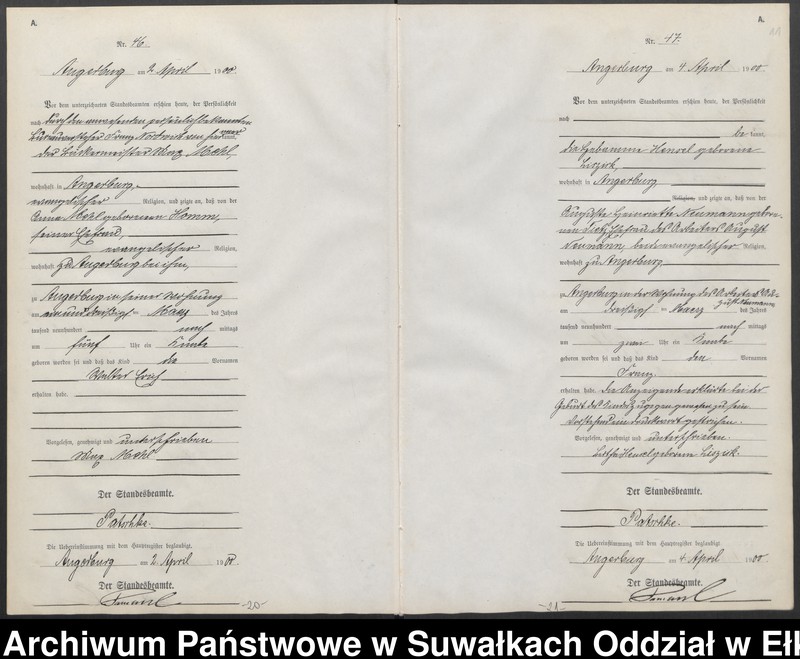 A.
Nr. 46.
Angerburg am 2 April 1900
Vor dem unterzeichneten Standesbeamten erschien heute, der Persönlichkeit
nach durch den anwesenden
Franz
kannt,
der Bäckermeister
wohnhaft in Angerburg,
evangelischer Religion, und zeigte an, daß von der
geborenen
seiner Ehefrau,
evangelischer Religion,
wohnhaft zu Angerburg bei ihm,
zu Angerburg in seiner Wohnung
am ein und dreißigsten Maerz des Jahres
tausend neunhundert nach mittags
um fünf Uhr ein Kind
geboren worden sei und daß das Kind die Vornamen
Walter Erich
erhalten habe.
Vorgelesen, genehmigt und unterschrieben
Der Standesbeamte.
Patschke.
Die Uebereinstimmung mit dem Hauptregister beglaubigt.
Angerburg am 2 April 1900
Der Standesbeamte.
-20-
A.
Nr. 47.
Angerburg am 4 April 1900
Vor dem unterzeichneten Standesbeamten erschien heute, der Persönlichkeit
nach
be kannt,
die Hebamme Hensel geborene
wohnhaft in Angerburg
Religion, und zeigte an, daß von der
Auguste Henriette Neumann gebore-
nen Ehefrau des Arbeiters August
Neumann, beide evangelischer Religion,
wohnhaft zu Angerburg
zu Angerburg in der Wohnung des Arbeiters Au-
gust Neumann
am dreißigsten Maerz des Jahres
tausend neunhundert nach mittags
um zwei Uhr ein Kind
geboren worden sei und daß das Kind den Vornamen
Franz
erhalten habe. Die Anzeigende erklärte bei der
Geburt des Kindes zugegen gewesen zu sein
Vorstehend ein Druckwort gestrichen.
Vorgelesen, genehmigt und unterschrieben.
Hensel geborene
Der Standesbeamte.
Patschke.
Die Uebereinstimmung mit dem Hauptregister beglaubigt.
Angerburg am 4 April 1900
Der Standesbeamte.
-21-
Archiwum Państwowe w Suwałkach Oddział w Ełk